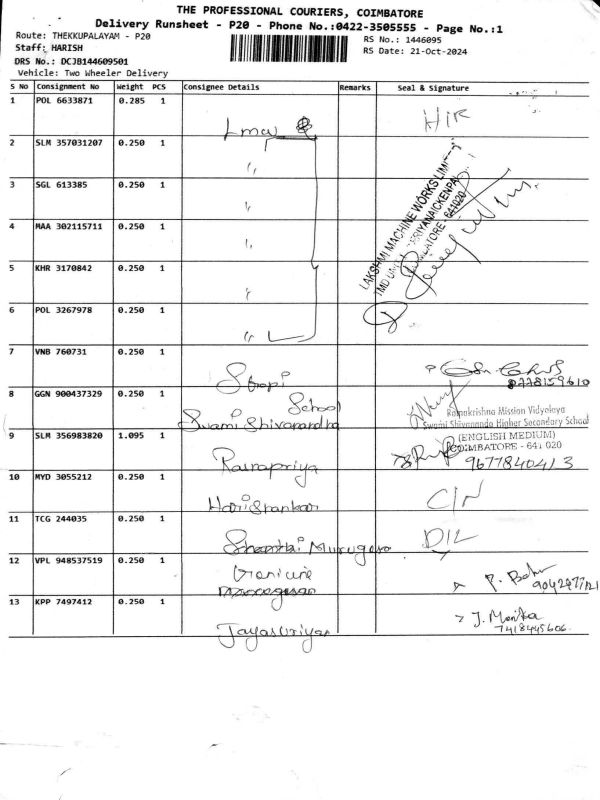 THE PROFESSIONAL COURIERS, COIMBATORE
Delivery Runsheet - P20 - Phone No.:0422-3505555 - Page No.:1
Route: THEKKUPALAYAM - P20
RS No.: 1446095
Staff: HARISH
RS Date: 21-Oct-2024
DRS No.: DCJB144609501
Vehicle: Two Wheeler Delivery
S No Consignment No Weight PCS Consignee Details Remarks Seal & Signature
1 POL 6633871 0.285 1
Lmw
2 SLM 357031207 0.250 1
"
3 SGL 613385 0.250 1
"
4 MAA 302115711 0.250 1
"
5 KHR 3170842 0.250 1
"
6 POL 3267978 0.250 1
"
LAKSHMI MACHINE WORKS LIMIT
COIMBATORE - 641020
7 VNB 760731 0.250 1
8778159610
8 GGN 900437329 0.250 1
School
Swami Shivanandha
Ramakrishna Mission Vidyalaya
Swami Shivananda Higher Secondary School
(ENGLISH MEDIUM)
COIMBATORE - 641 020
9 SLM 356983820 1.095 1
Rajnapriya
9677840413
10 MYD 3055212 0.250 1
Harishankar
C/N
11 TCG 244035 0.250 1
Shanthi Murugesan
D/L
12 VPL 948537519 0.250 1
13 KPP 7497412 0.250 1
J. Monika
7418445606
Jayasuriyan